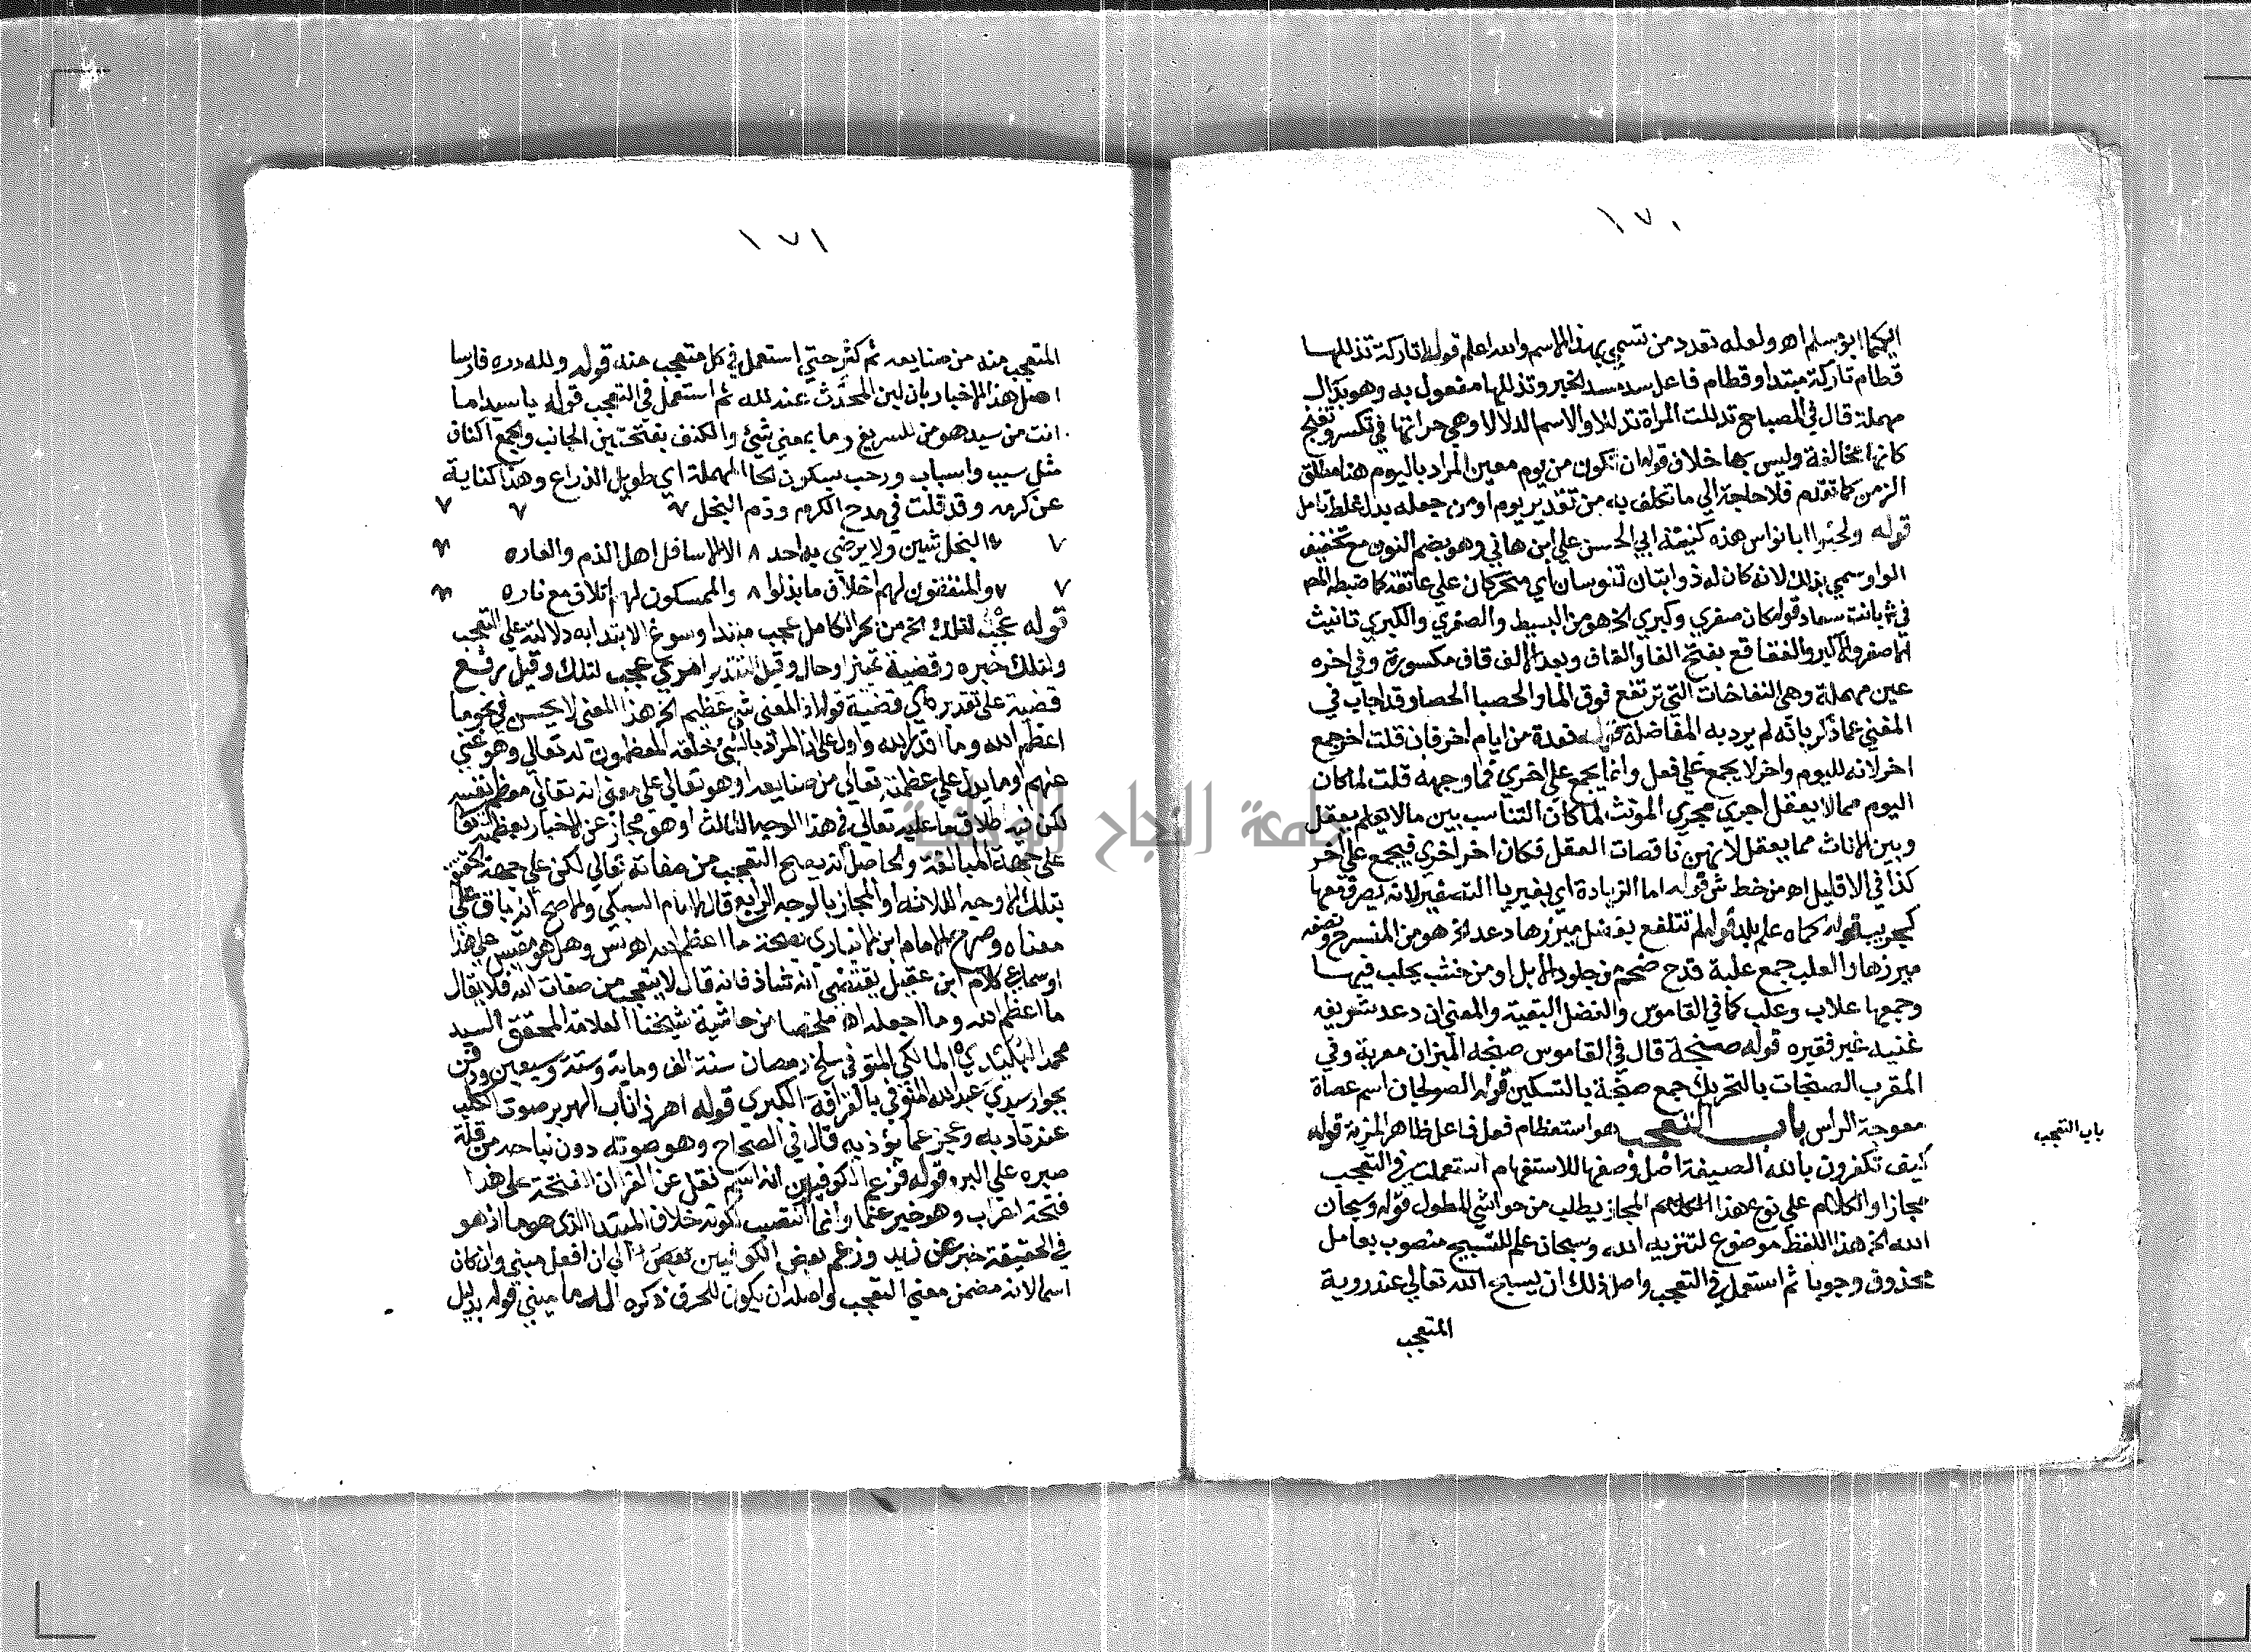 ١٧٠
ابو مسلم اهـ ولعله تعدد من تسمي بهذا الاسم والله اعلم قوله اتاركة تدللها
قطام تاركة مبتدا وقطام فاعل سد مسد الخبر وتدللها مفعول به وهو بدال
مهملة قال في المصباح تدللت المراة تدللا والاسم الدلال وهي جراتها في تكسر وتغنج
كانها مخالفة وليس بها خلاف قوله ان تكون من يوم معين المراد باليوم هنا مطلق
الزمن كما تقدم فلا حاجة الي ما تكلف به من تقدير يوم او من جعله بدل غلط تامل
قوله ولحنوا ابا نواس هذه كنيته ابي الحسن علي ابن هاني وهو بضم النون مع تخفيف
الواو سمي بذلك لانه كان له ذوابتان تنوسان اي تتحركان علي عاتقه كما ضبطه المص
في بانت سعاد قوله كان صغري وكبري الخ هو من البسيط والصغري والكبري تانيث
الاصغر والاكبر والفقاقع بفتح الفا والقاف وبعد الالف قاف مكسورة وفي اخره
عين مهملة وهي النفاخات التي ترتفع فوق الما والحصبا الحصا وقد اجاب في
المغني عما ذكر بانه لم يرد به المفاضلة قوله فعدة من ايام اخر فان قلت اخر جمع
اخر لانه لليوم واخر لا يجمع علي فعل وانما يجمع علي اخري فما وجهه قلت لما كان
اليوم مما لا يعقل اجري مجري المونث لما كان التناسب بين ما لا يعلم يعقل
وبين الاناث مما يعقل لانهن ناقصات العقل فكان اخر اخري فيجمع علي اخر
كذا في الاقليل اهـ من خط ش قوله اما الزيادة اي بغير يا التصغير لانه يصرف معها
علم بلد قوله لم تتلفع بفضل ميزرها دعد الخ هو من المنسرح
ميزرها والعلب جمع علبة قدح ضخم من جلود الابل او من خشب يحلب فيها
وجمعها علاب وعلب كما في القاموس والفضل البقية والمعني ان دعد شريفه
غنيه غير فقيره قوله صنجة قال في القاموس صنجة الميزان معربة وفي
المغرب الصنجات بالتحريك جمع صنجة بالتسكين قوله الصولجان اسم عصاة
معوجة الراس باب التعجب هو استعظام فعل فاعل ظاهر المزية قوله
باب التعجب
كيف تكفرون بالله الصيغة اصل وضعها للاستفهام استعملت في التعجب
مجازا والكلام علي نوع هذا المجاز يطلب من حواشي المطول قوله وسبحان
الله الخ هذا اللفظ موضوع لتنزيه الله وسبحان علم للتسبيح منصوب بعامل
محذوف وجوبا ثم استعمل في التعجب واصل ذلك ان يسبح الله تعالي عند روية
المتعجب
١٧١
المتعجب منه من صنايعه ثم كثر حتي استعمل في كل متعجب منه قوله ولله دره فارسا
اصل هذا الاخبار بان لبن المحدث عنه لله ثم استعمل في التعجب قوله يا سيدا ما
انت من سيد هو من السريع وما بمعني شيئ والكنف بفتحتين الجانب والجمع اكناف
مثل سبب واسباب ورحب بسكون الحا المهملة اي طويل الذراع وهذا كناية
عن كرمه وقد قلت في مدح الكرم وذم البخل
البخل شين ولا يرضي به احد ٨ الا الاسافل اهل الذم والعاره
والمنفقون لهم اخلاق ما بذلوا ٨ والممسكون لهم اتلاف مع ناره
قوله عجب لتلك الخ من بحر الكامل عجب مبتدا وسوغ الابتدا به دلالته علي التعجب
ولتلك خبره وقضية تميز او حال وقيل التقدير امري عجب لتلك وقيل برفع
قضية علي تقدير هي قضية قوله اذ المعني شي عظيم الخ هذا المعني لا يحسن في نحو ما
اعظم الله وما اقدر الله واول علي ان المراد بالشي خلقه المعظمون له تعالي وهو غني
عنهم او ما يدل علي عظمته تعالي من صنايعه او هو تعالي علي معني انه تعالي معظم لنفسه
لكن فيه اطلاق ما عليه تعالي في هذا الوجه الثالث او هو مجاز عن الاخبار بعظمته
علي جهة المبالغة والحاصل انه يصح التعجب من صفاته تعالي لكن علي جهة
بتلك الاوجه الثلاثة او المجاز بالوجه الرابع قال الامام السبكي والاصح انه باق علي
معناه وصرح الامام ابن الانباري بصحة ما اعظم الله اهـ يس وهل هو مقيس علي هذا
او سماعي كلام ابن عقيل يقتضي انه شاذ فانه قال لا يتعجب من صفات الله فلا يقال
ما اعظم الله وما اجمله اهـ ملخصا من حاشية شيخنا العلامة المحقق السيد
محمد البليدي المالكي المتوفي سلخ رمضان سنة الف وماية وستة وسبعين ودفن
بجوار سيدي عبد الله المنوفي بالقرافة الكبري قوله اهر ذا ناب الهرير صوت الكلب
عند تاديه وعجز عما يؤذيه قال في الصحاح وهو صوته دون نباحه من قلة
صبره علي البرد قوله فزعم الكوفيين انه اسم نقل عن الفرا ان الفتحة علي هذا
فتحة اعراب وهو خبر عنما وانما انتصب لكونه خلاف المبتدا الذي هو ما اذ هو
في الحقيقة خبر عن زيد وزعم بعض الكوفيين ان افعل مبني وان كان
اسما لانه مضمن معني التعجب واصله ان يكون للحرف ذكره مبني قوله بدليل